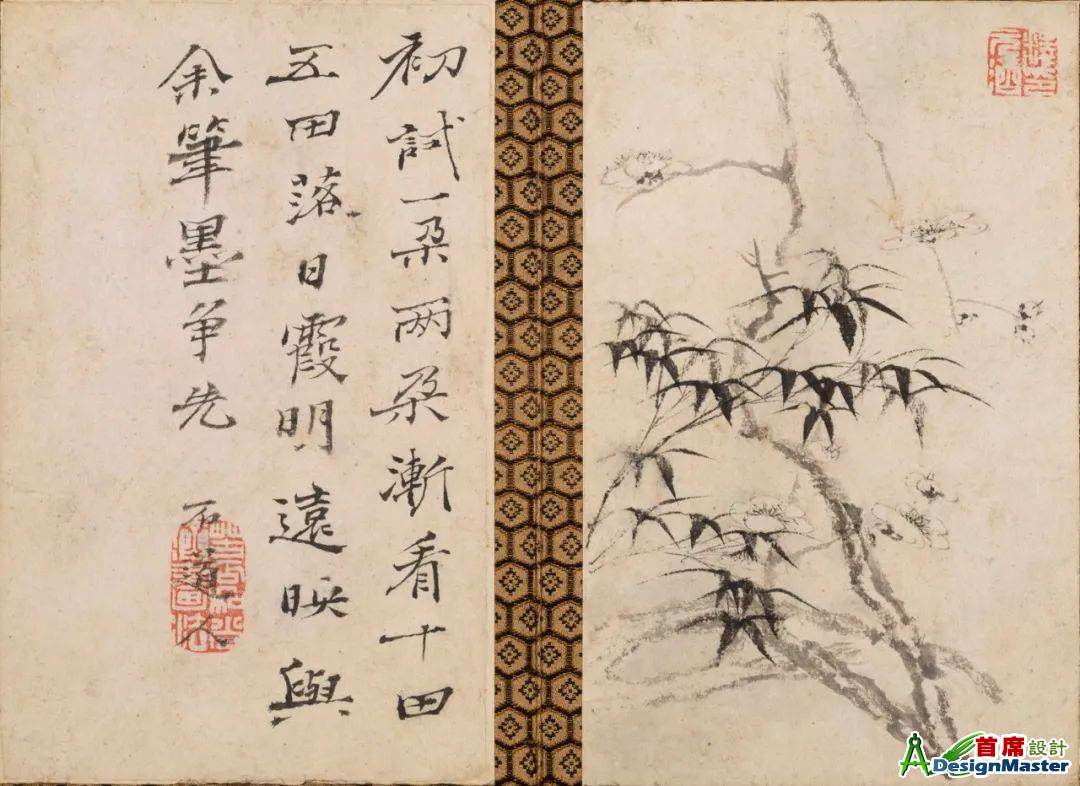 初試一朶兩朶漸看十田
五田落日霞明遠映與
余筆墨争先
石道人
首席設計
DesignMaster